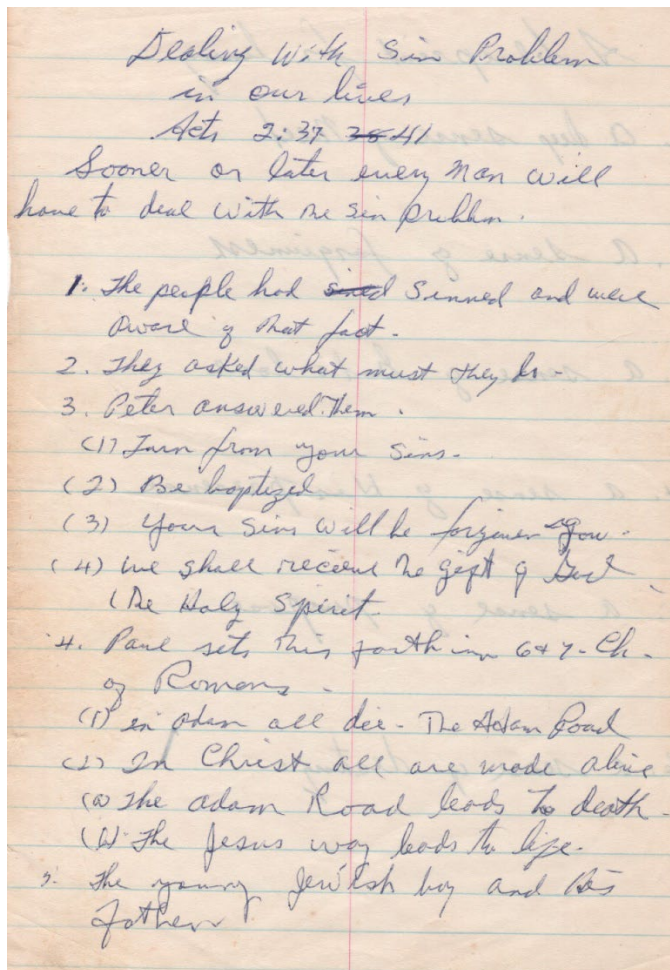 Dealing With Sin Problem
in our lives
Acts 2:37 38 41
Sooner or later every man will
have to deal with the sin problem.
1. The people had sined Sinned and were
aware of that fact.
2. They asked what must they do -
3. Peter answered them.
(1) Turn from your Sins.
(2) Be baptized
(3) Your Sins will be forgiven you.
(4) We shall receive the gift of God
(The Holy Spirit.
4. Paul sets this forth in 6 & 7 - Ch -
of Romans -
(1) in Adam all die - The Adam Road
(2) In Christ all are made alive
(a) The Adam Road leads to death -
(b) The Jesus way leads to life.
5. The young Jewish boy and His
father